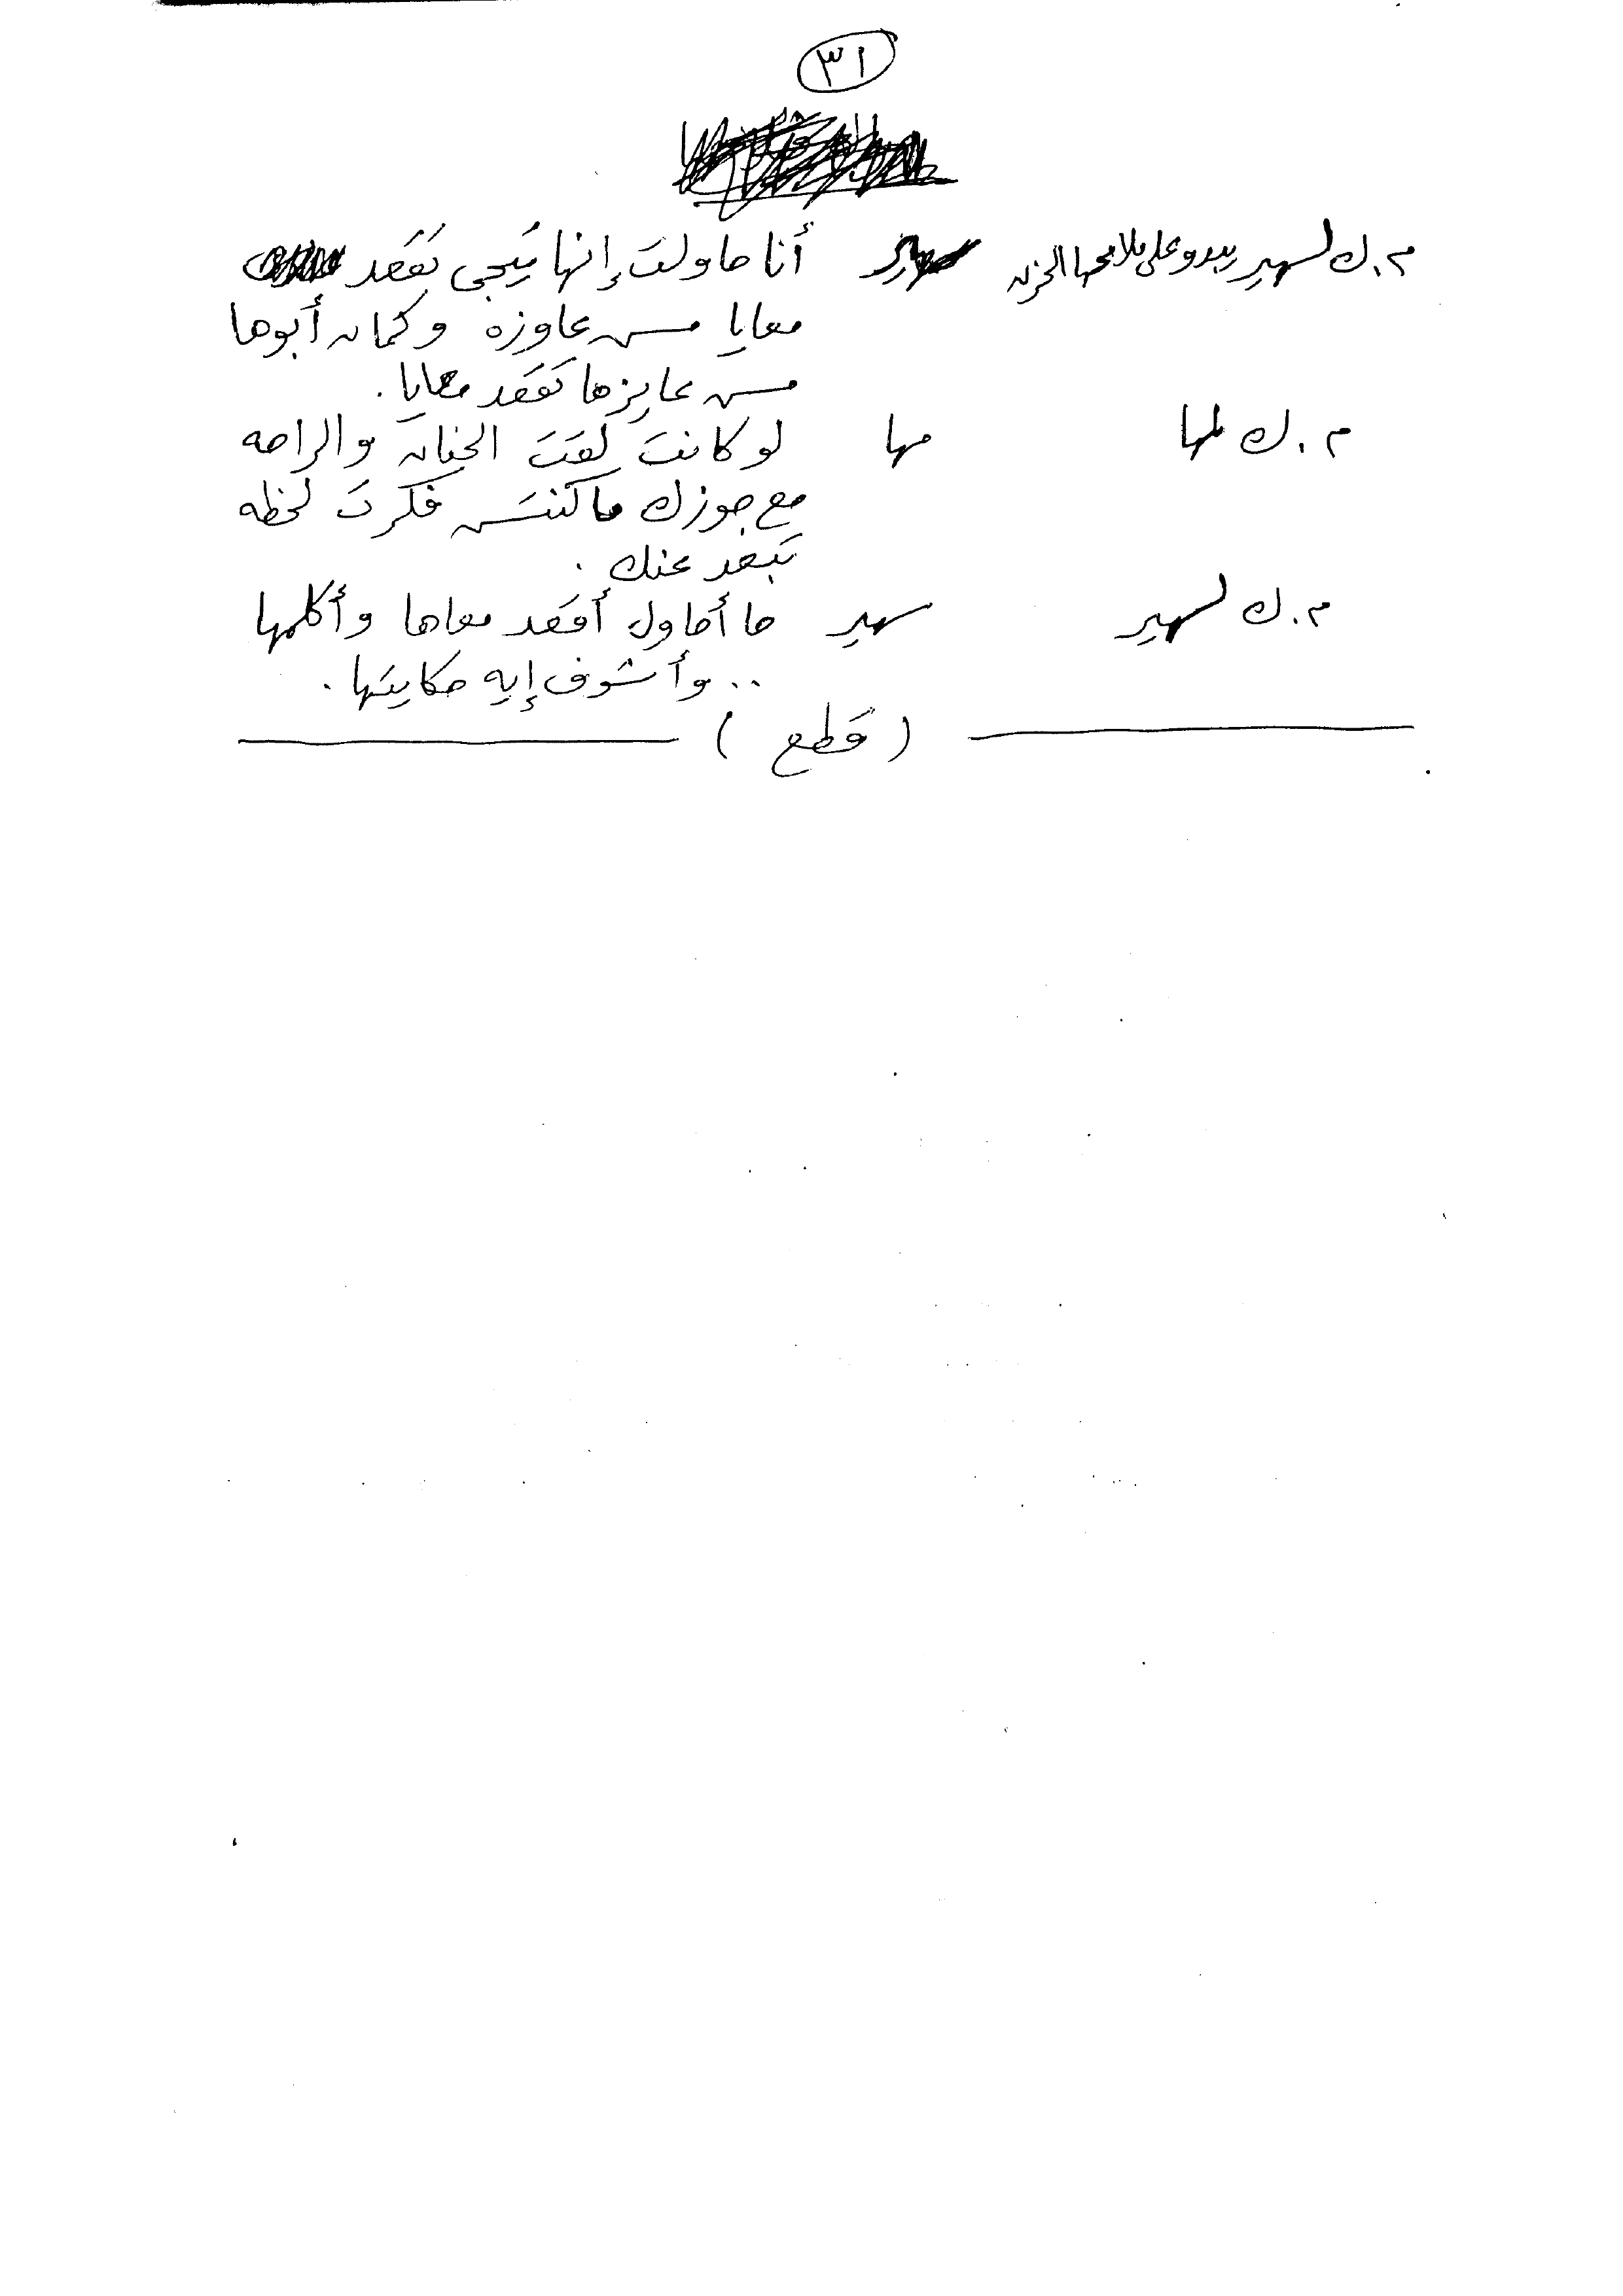 ٣١
م.ك لسهير يبدو على ملامحها الحزن سهير أنا حاولت إنها تيجى تقعد
معايا مش عاوزه وكمان أبوها
مش عايزها تقعد معايا.
م.ك لمها مها لو كانت لقت الحنان والراحه
مع جوزك ماكنتش فكرت لحظه
تبعد عنك.
م.ك لسهير سهير حا أحاول أقعد معاها وأكلمها
.. وأشوف إيه حكايتها.
(قطع)